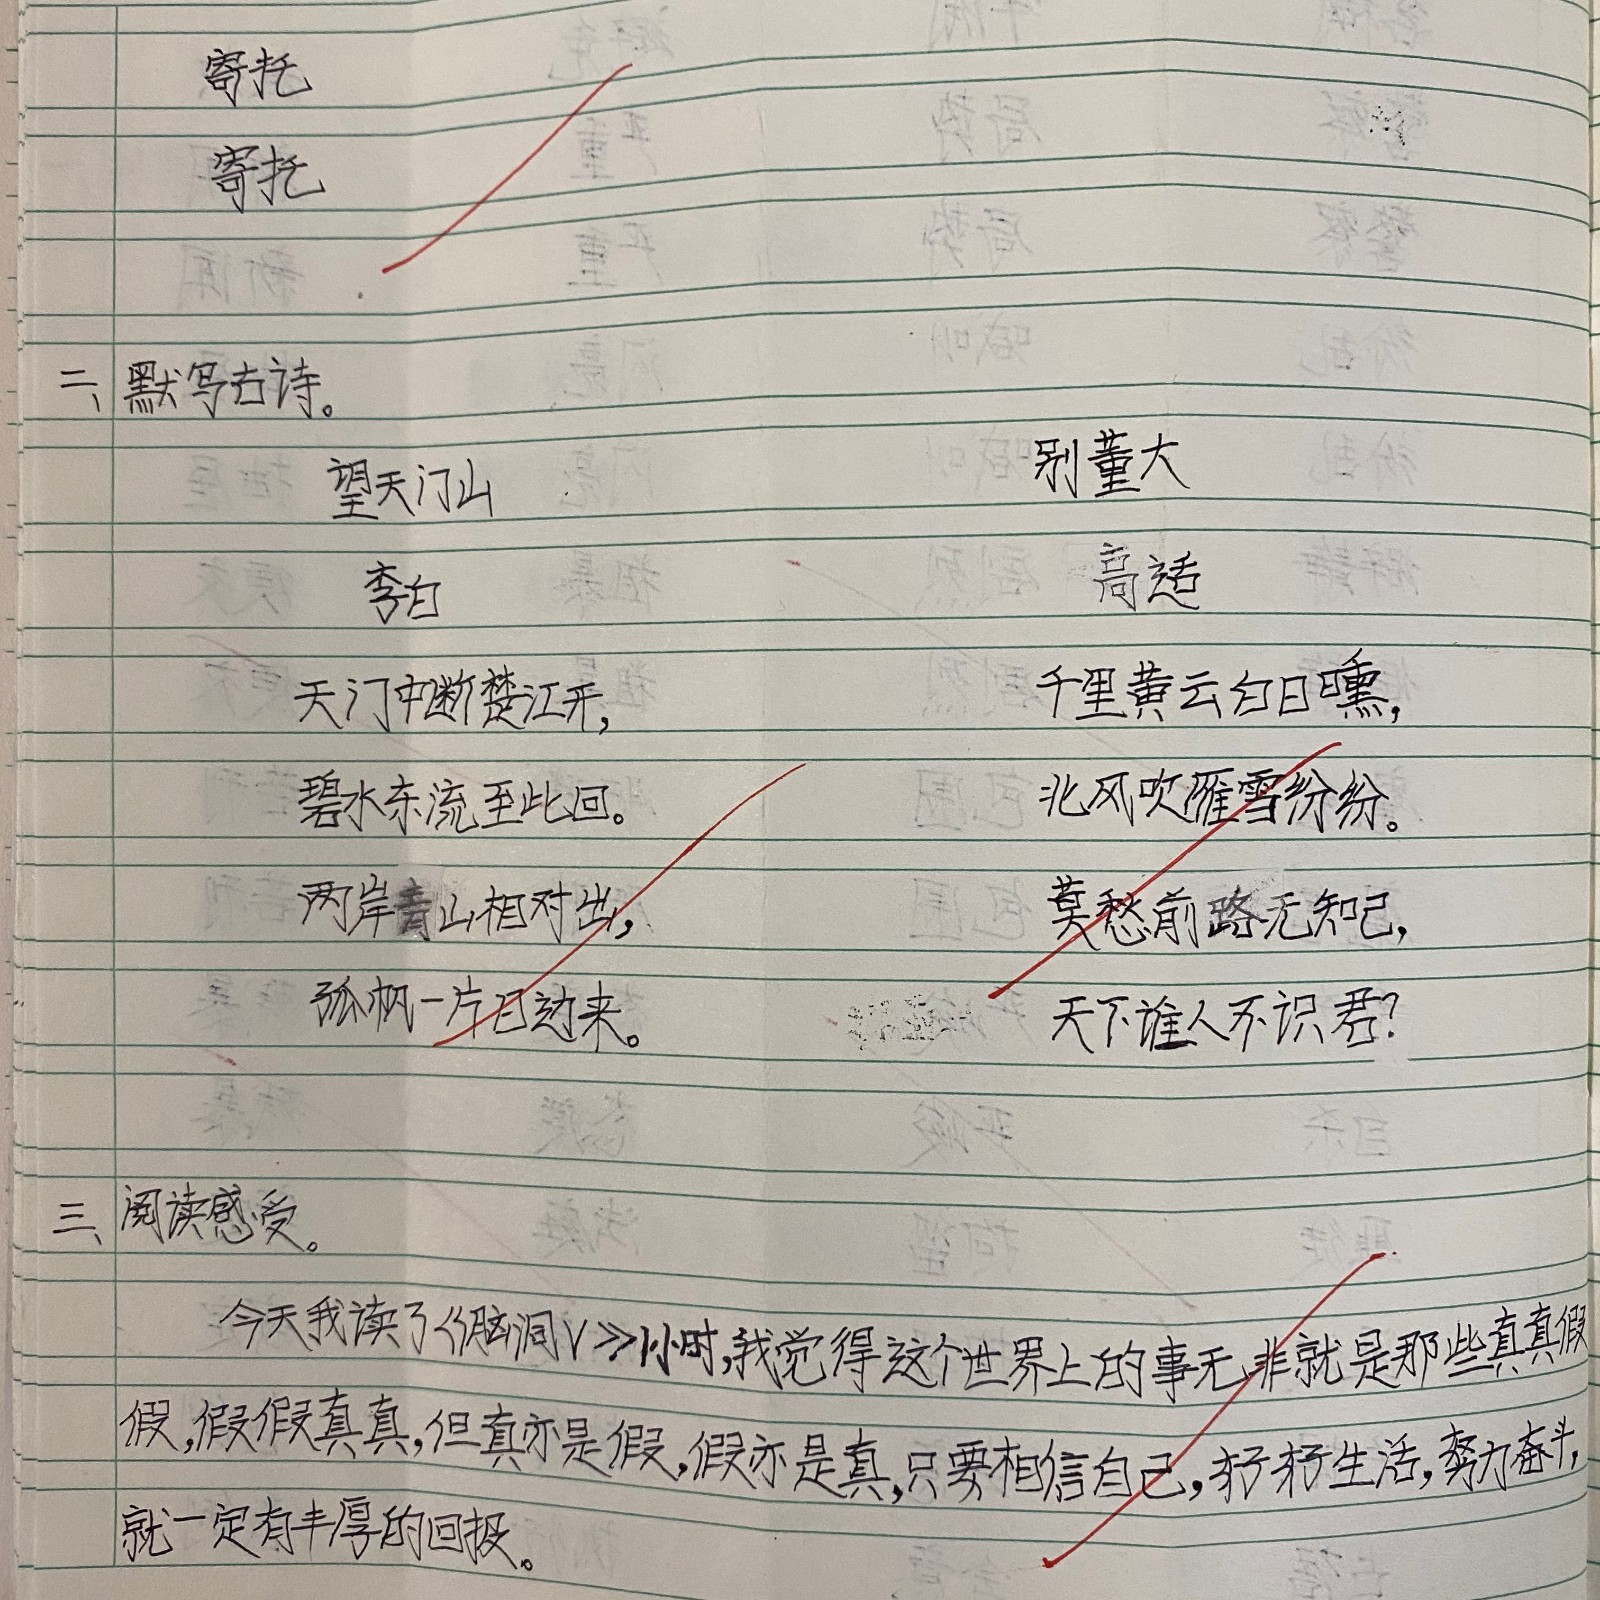 寄托
寄托
二、默写古诗。
望天门山
李白
天门中断楚江开,
碧水东流至此回。
两岸青山相对出,
孤帆一片日边来。
别董大
高适
千里黄云白日曛,
北风吹雁雪纷纷。
莫愁前路无知己,
天下谁人不识君?
三、阅读感受。
今天我读了《脑洞V》1小时,我觉得这个世界上的事无非就是那些真真假
假,假假真真,但真亦是假,假亦是真,只要相信自己,好好生活,努力奋斗,
就一定有丰厚的回报。